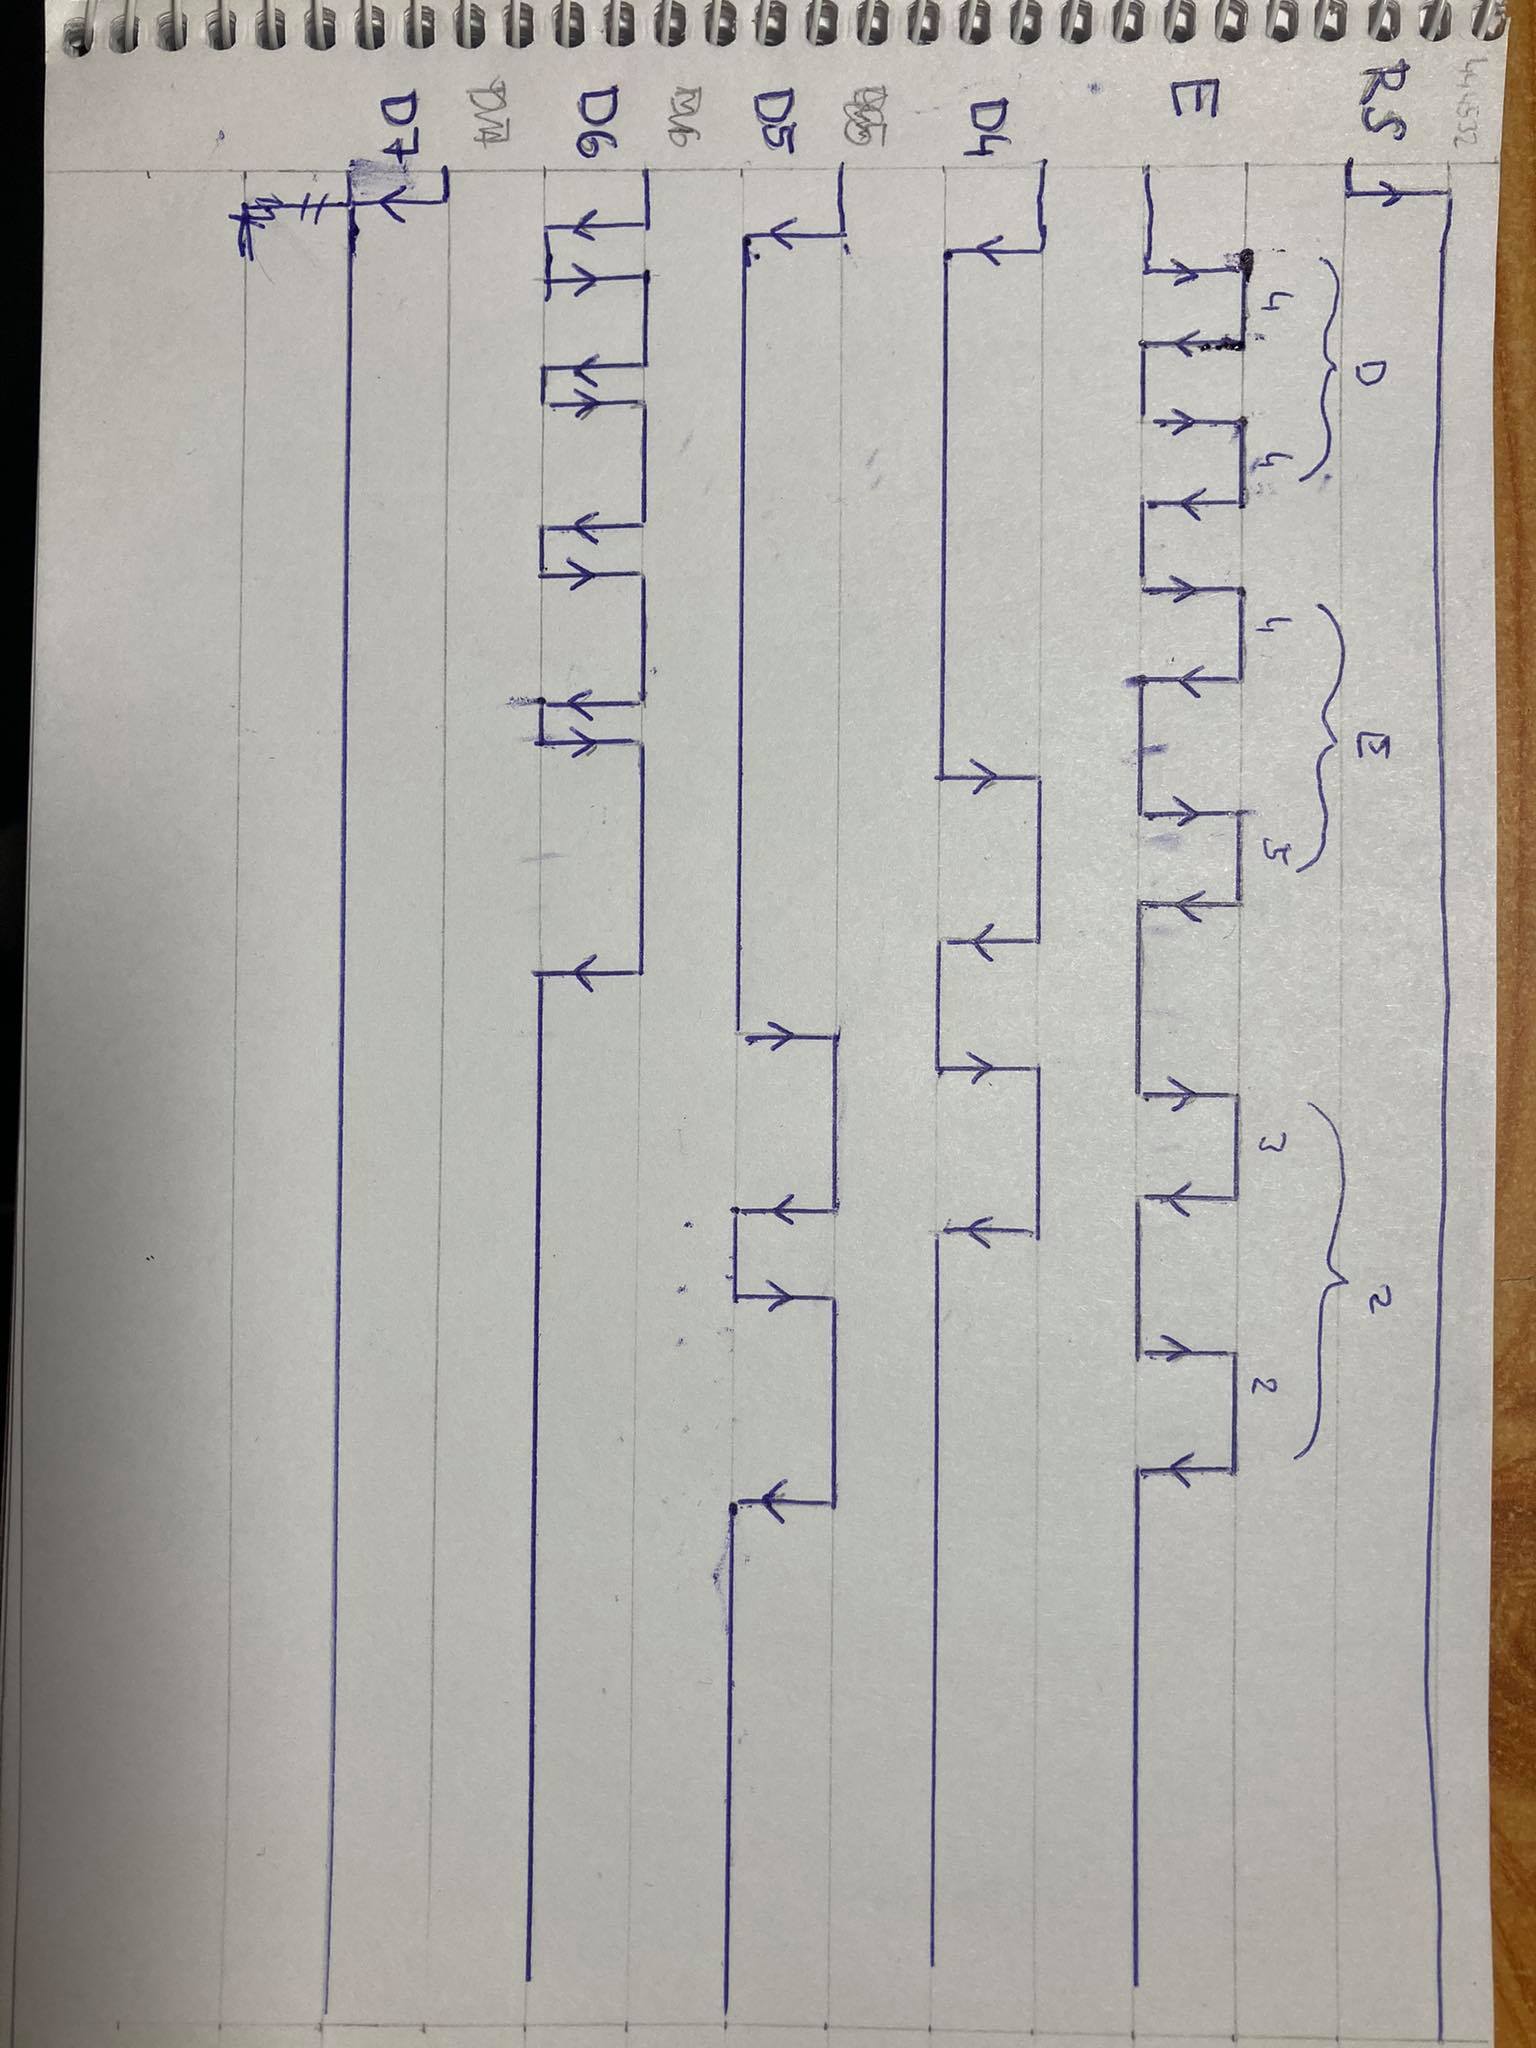 444532
RS
D E 2
4 4 4 5 3 2
E
D4
D5
D6
D7